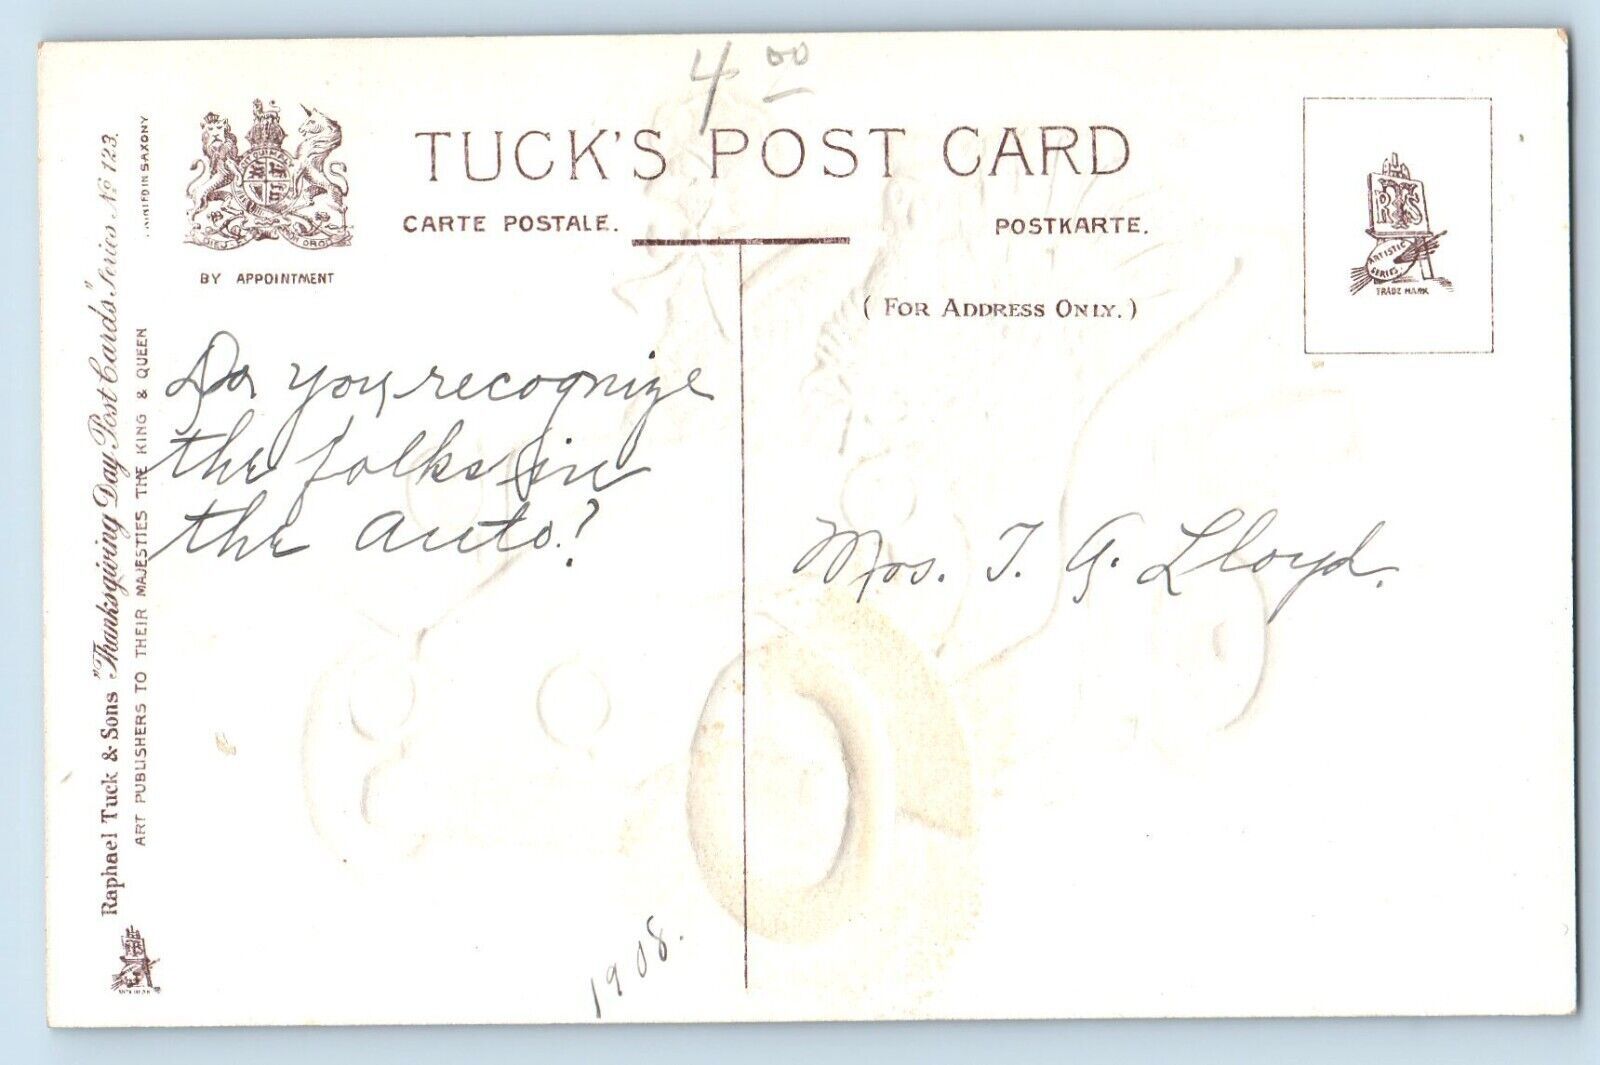 4 00
TUCK'S POST CARD
CARTE POSTALE.
POSTKARTE.
BY APPOINTMENT
(FOR ADDRESS ONLY.)
R T S
ARTISTIC
SERIES
TRADE MARK
Do you recognize
the folks in
the auto?
Mrs. T. G. Lloyd.
1908.
Raphael Tuck & Sons "Thanksgiving Day Post Cards." Series No 123.
ART PUBLISHERS TO THEIR MAJESTIES THE KING & QUEEN
PRINTED IN SAXONY